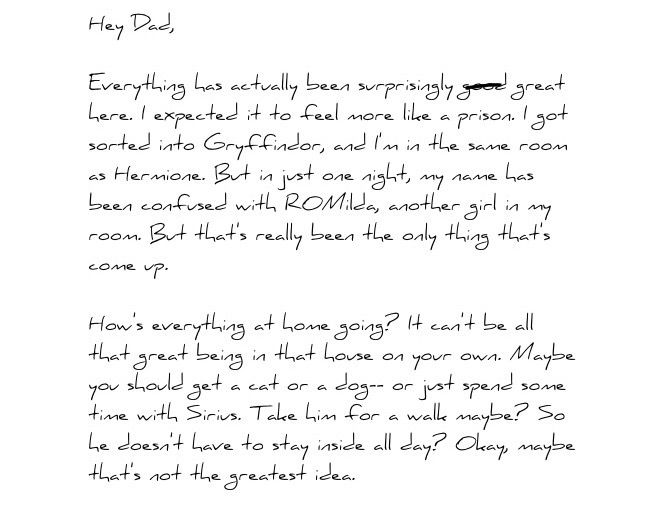 Hey Dad,
Everything has actually been surprisingly good great
here. I expected it to feel more like a prison. I got
sorted into Gryffindor, and I'm in the same room
as Hermione. But in just one night, my name has
been confused with ROMilda, another girl in my
room. But that's really been the only thing that's
come up.
How's everything at home going? It can't be all
that great being in that house on your own. Maybe
you should get a cat or a dog-- or just spend some
time with Sirius. Take him for a walk maybe? So
he doesn't have to stay inside all day? Okay, maybe
that's not the greatest idea.